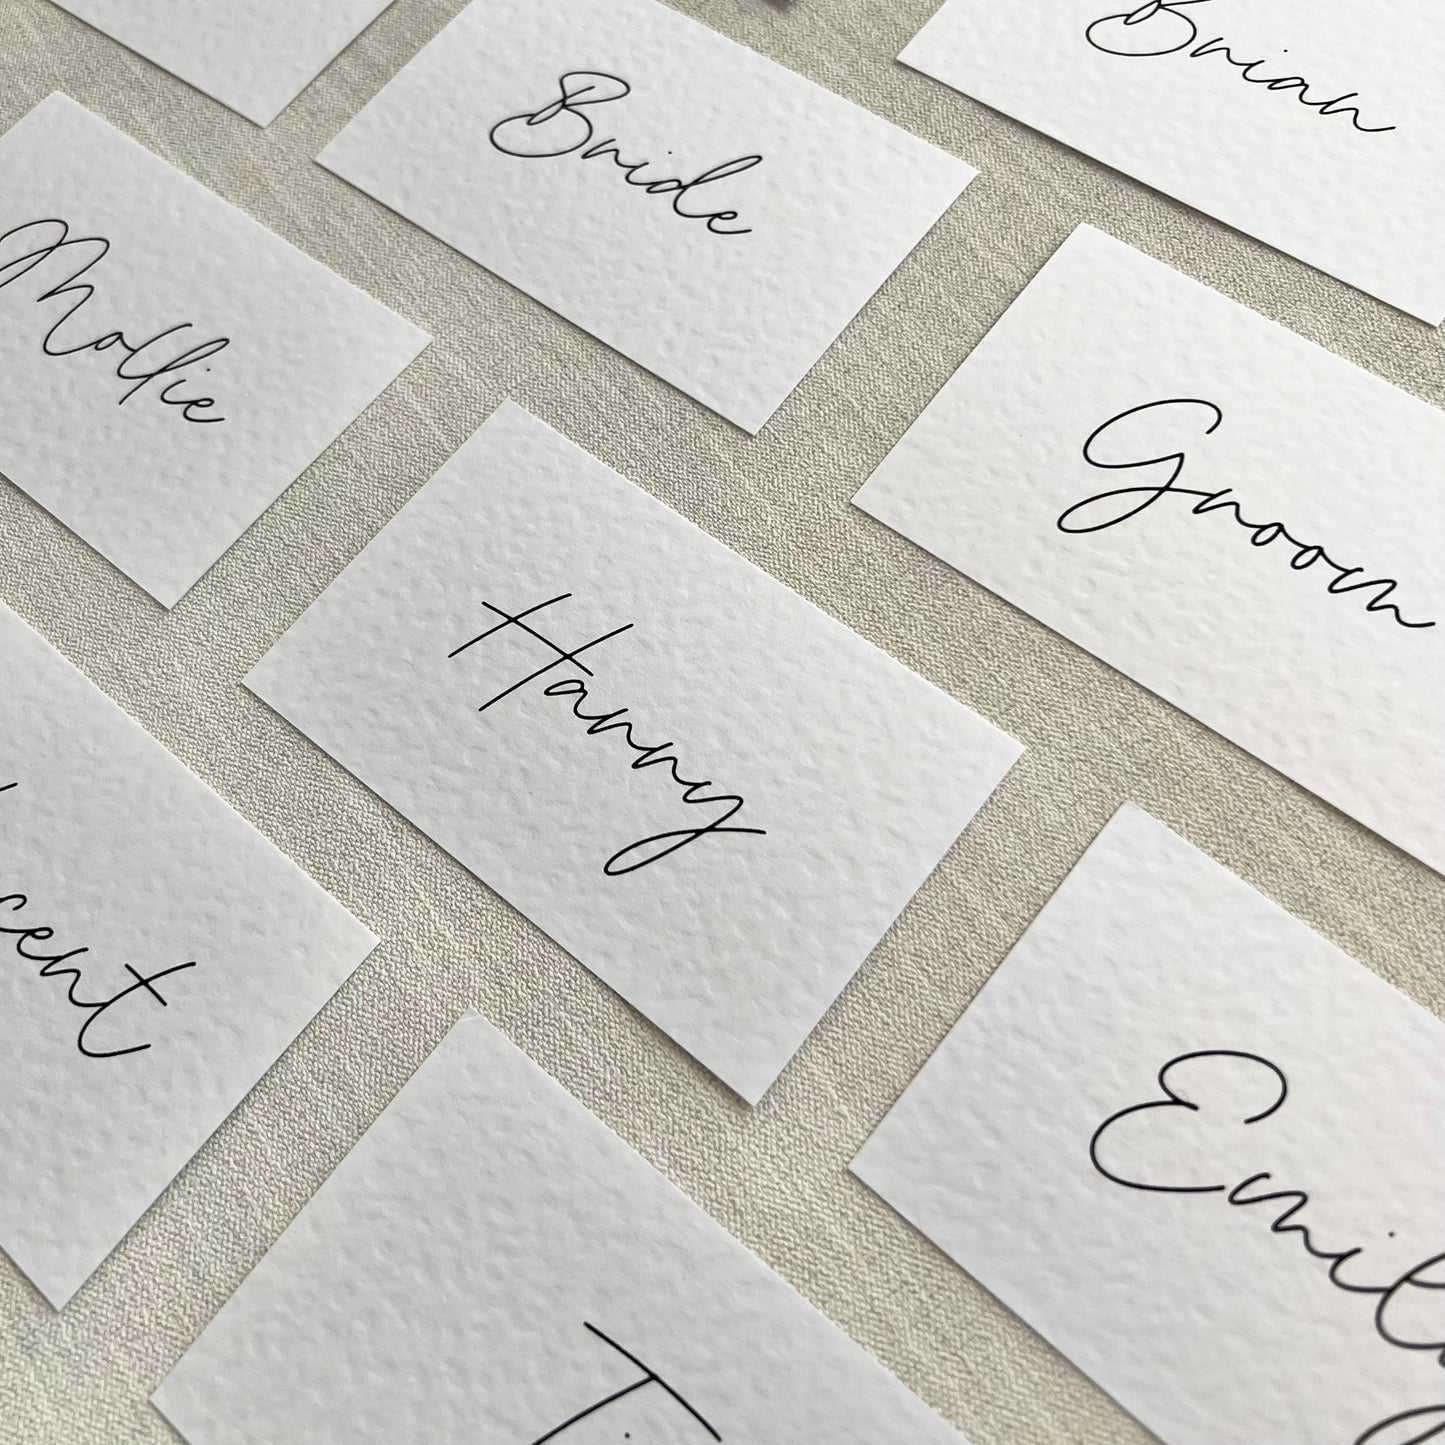 Brian
Bride
Mollie
Groom
Harry
cent
Emily